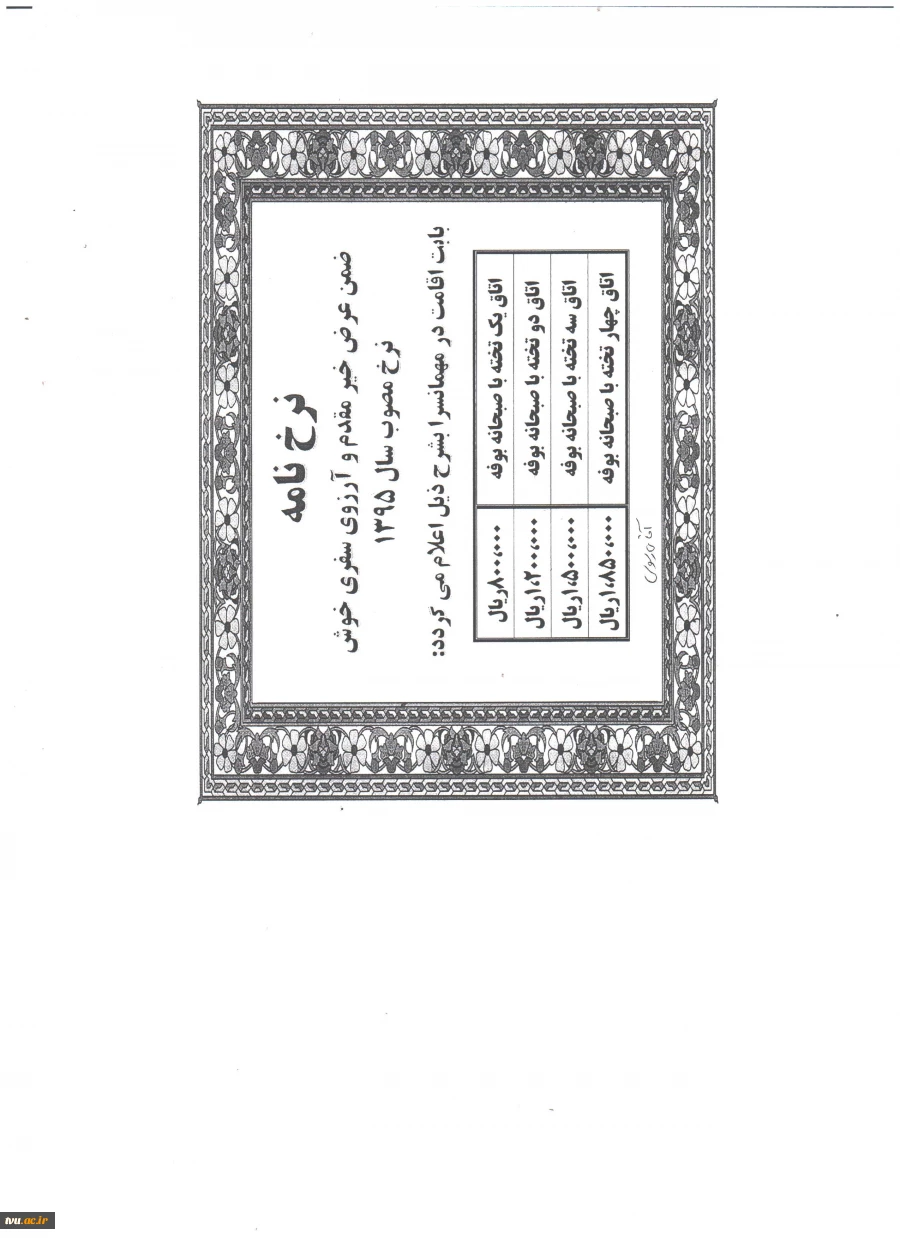 نرخ نامه
ضمن عرض خیر مقدم و آرزوی سفری خوش
نرخ مصوب سال ۱۳۹۵
بابت اقامت در مهمانسرا بشرح ذیل اعلام می گردد:
اتاق یک تخته با صبحانه بوفه ۸۰۰،۰۰۰ریال
اتاق دو تخته با صبحانه بوفه ۱،۲۰۰،۰۰۰ریال
اتاق سه تخته با صبحانه بوفه ۱،۵۰۰،۰۰۰ریال
اتاق چهار تخته با صبحانه بوفه ۱،۸۵۰،۰۰۰ریال
tvu.ac.ir